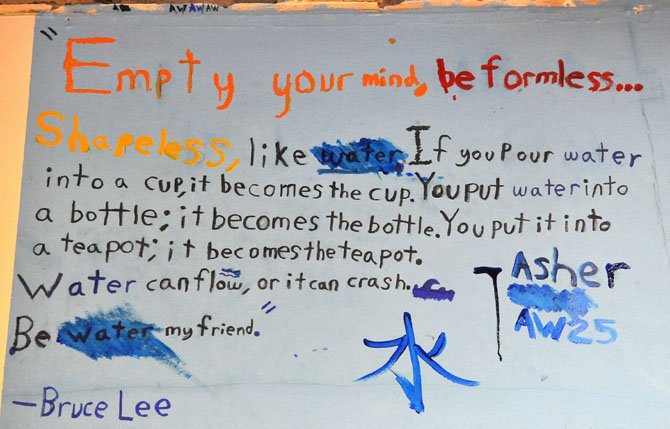 AWAWAW
"Empty your mind, be formless...
Shapeless, like water. If you pour water
into a cup, it becomes the cup. You put water into
a bottle; it becomes the bottle. You put it into
a teapot; it becomes the teapot.
Water can flow, or it can crash.
Be water my friend."
—Bruce Lee
水
Asher
AW25